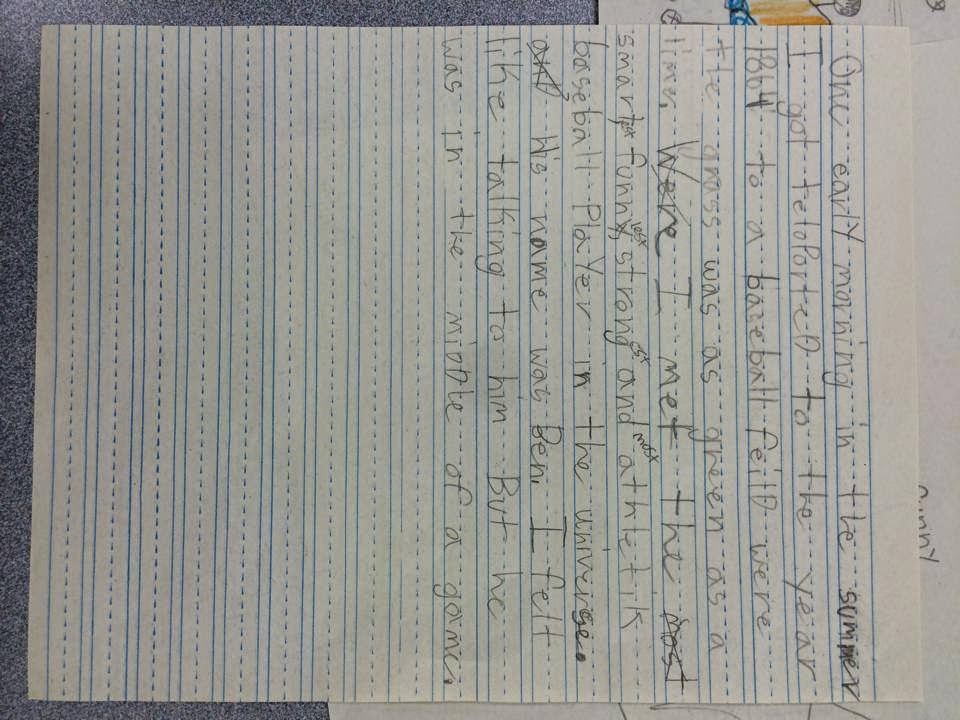 One early morning in the summer
I got teloported to the year
1864 to a baseball feild were
the grass was as green as a
lime. Were I met the most
smartest funnyest, strongest and most athletik
baseball Player in the universe.
and his name was Ben. I felt
like talking to him But he
was in the middle of a game.
Sunny